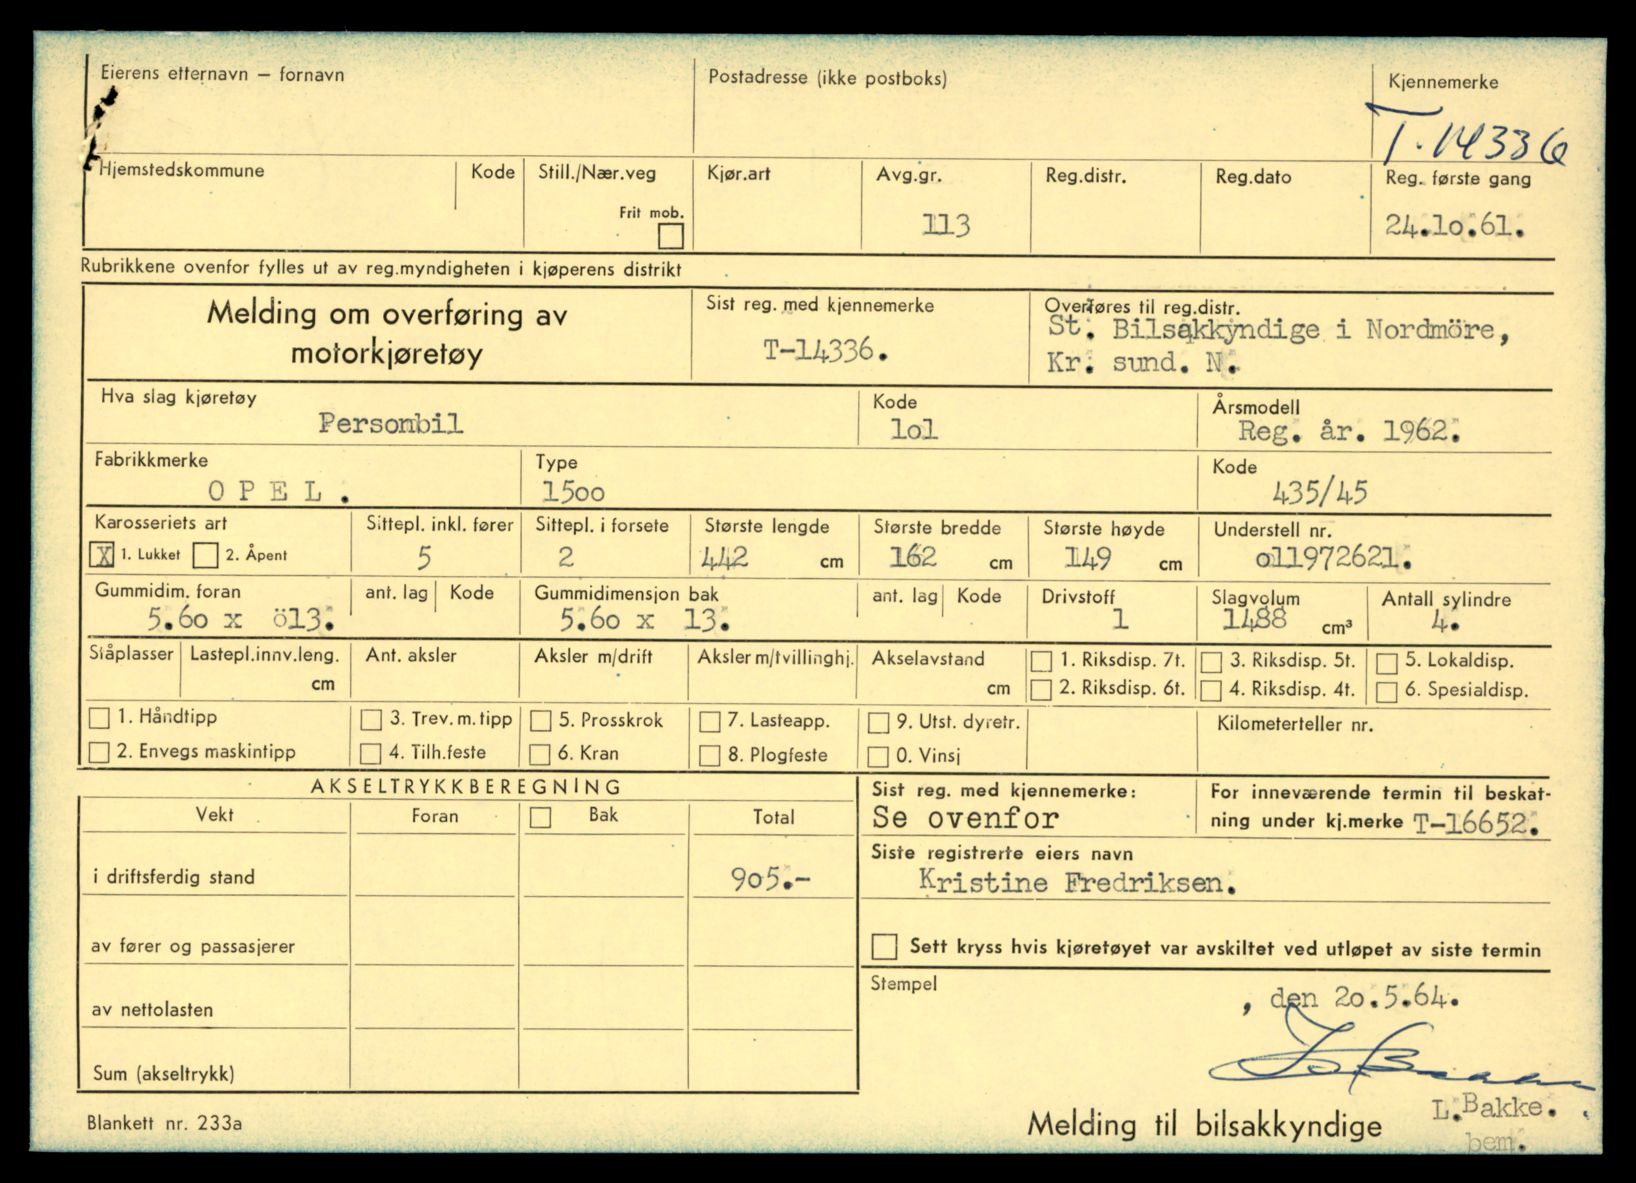 Eierens etternavn – fornavn
Postadresse (ikke postboks)
Kjennemerke
T-14336
Hjemstedskommune
Kode
Still./Nær.veg
Frit mob.
Kjør.art
Avg.gr.
113
Reg.distr.
Reg.dato
Reg. første gang
24.lo.61.
Rubrikkene ovenfor fylles ut av reg.myndigheten i kjøperens distrikt
Melding om overføring av
motorkjøretøy
Sist reg. med kjennemerke
T-14336.
Overføres til reg.distr.
St. Bilsakkyndige i Nordmöre,
Kr. sund. N.
Hva slag kjøretøy
Personbil
Kode
lol
Årsmodell
Reg. år. 1962.
Fabrikkmerke
O P E L .
Type
15oo
Kode
435/45
Karosseriets art
X 1. Lukket 2. Åpent
Sittepl. inkl. fører
5
Sittepl. i forsete
2
Største lengde
442 cm
Største bredde
162 cm
Største høyde
149 cm
Understell nr.
o11972621.
Gummidim. foran
5.6o x ö13.
ant. lag
Kode
Gummidimensjon bak
5.6o x 13.
ant. lag
Kode
Drivstoff
1
Slagvolum
1488 cm³
Antall sylindre
4.
Ståplasser
Lastepl.innv.leng.
cm
Ant. aksler
Aksler m/drift
Aksler m/tvillinghj.
Akselavstand
cm
1. Riksdisp. 7t.
2. Riksdisp. 6t.
3. Riksdisp. 5t.
4. Riksdisp. 4t.
5. Lokaldisp.
6. Spesialdisp.
1. Håndtipp
2. Envegs maskintipp
3. Trev. m. tipp
4. Tilh.feste
5. Prosskrok
6. Kran
7. Lasteapp.
8. Plogfeste
9. Utst. dyretr.
0. Vinsj
Kilometerteller nr.
AKSELTRYKKBEREGNING
Vekt
Foran
Bak
Total
i driftsferdig stand
905.-
av fører og passasjerer
av nettolasten
Sum (akseltrykk)
Sist reg. med kjennemerke:
Se ovenfor
For inneværende termin til beskat-
ning under kj.merke T-16652.
Siste registrerte eiers navn
Kristine Fredriksen.
Sett kryss hvis kjøretøyet var avskiltet ved utløpet av siste termin
Stempel
, den 2o.5.64.
L.Bakke.
bem.
Blankett nr. 233a
Melding til bilsakkyndige